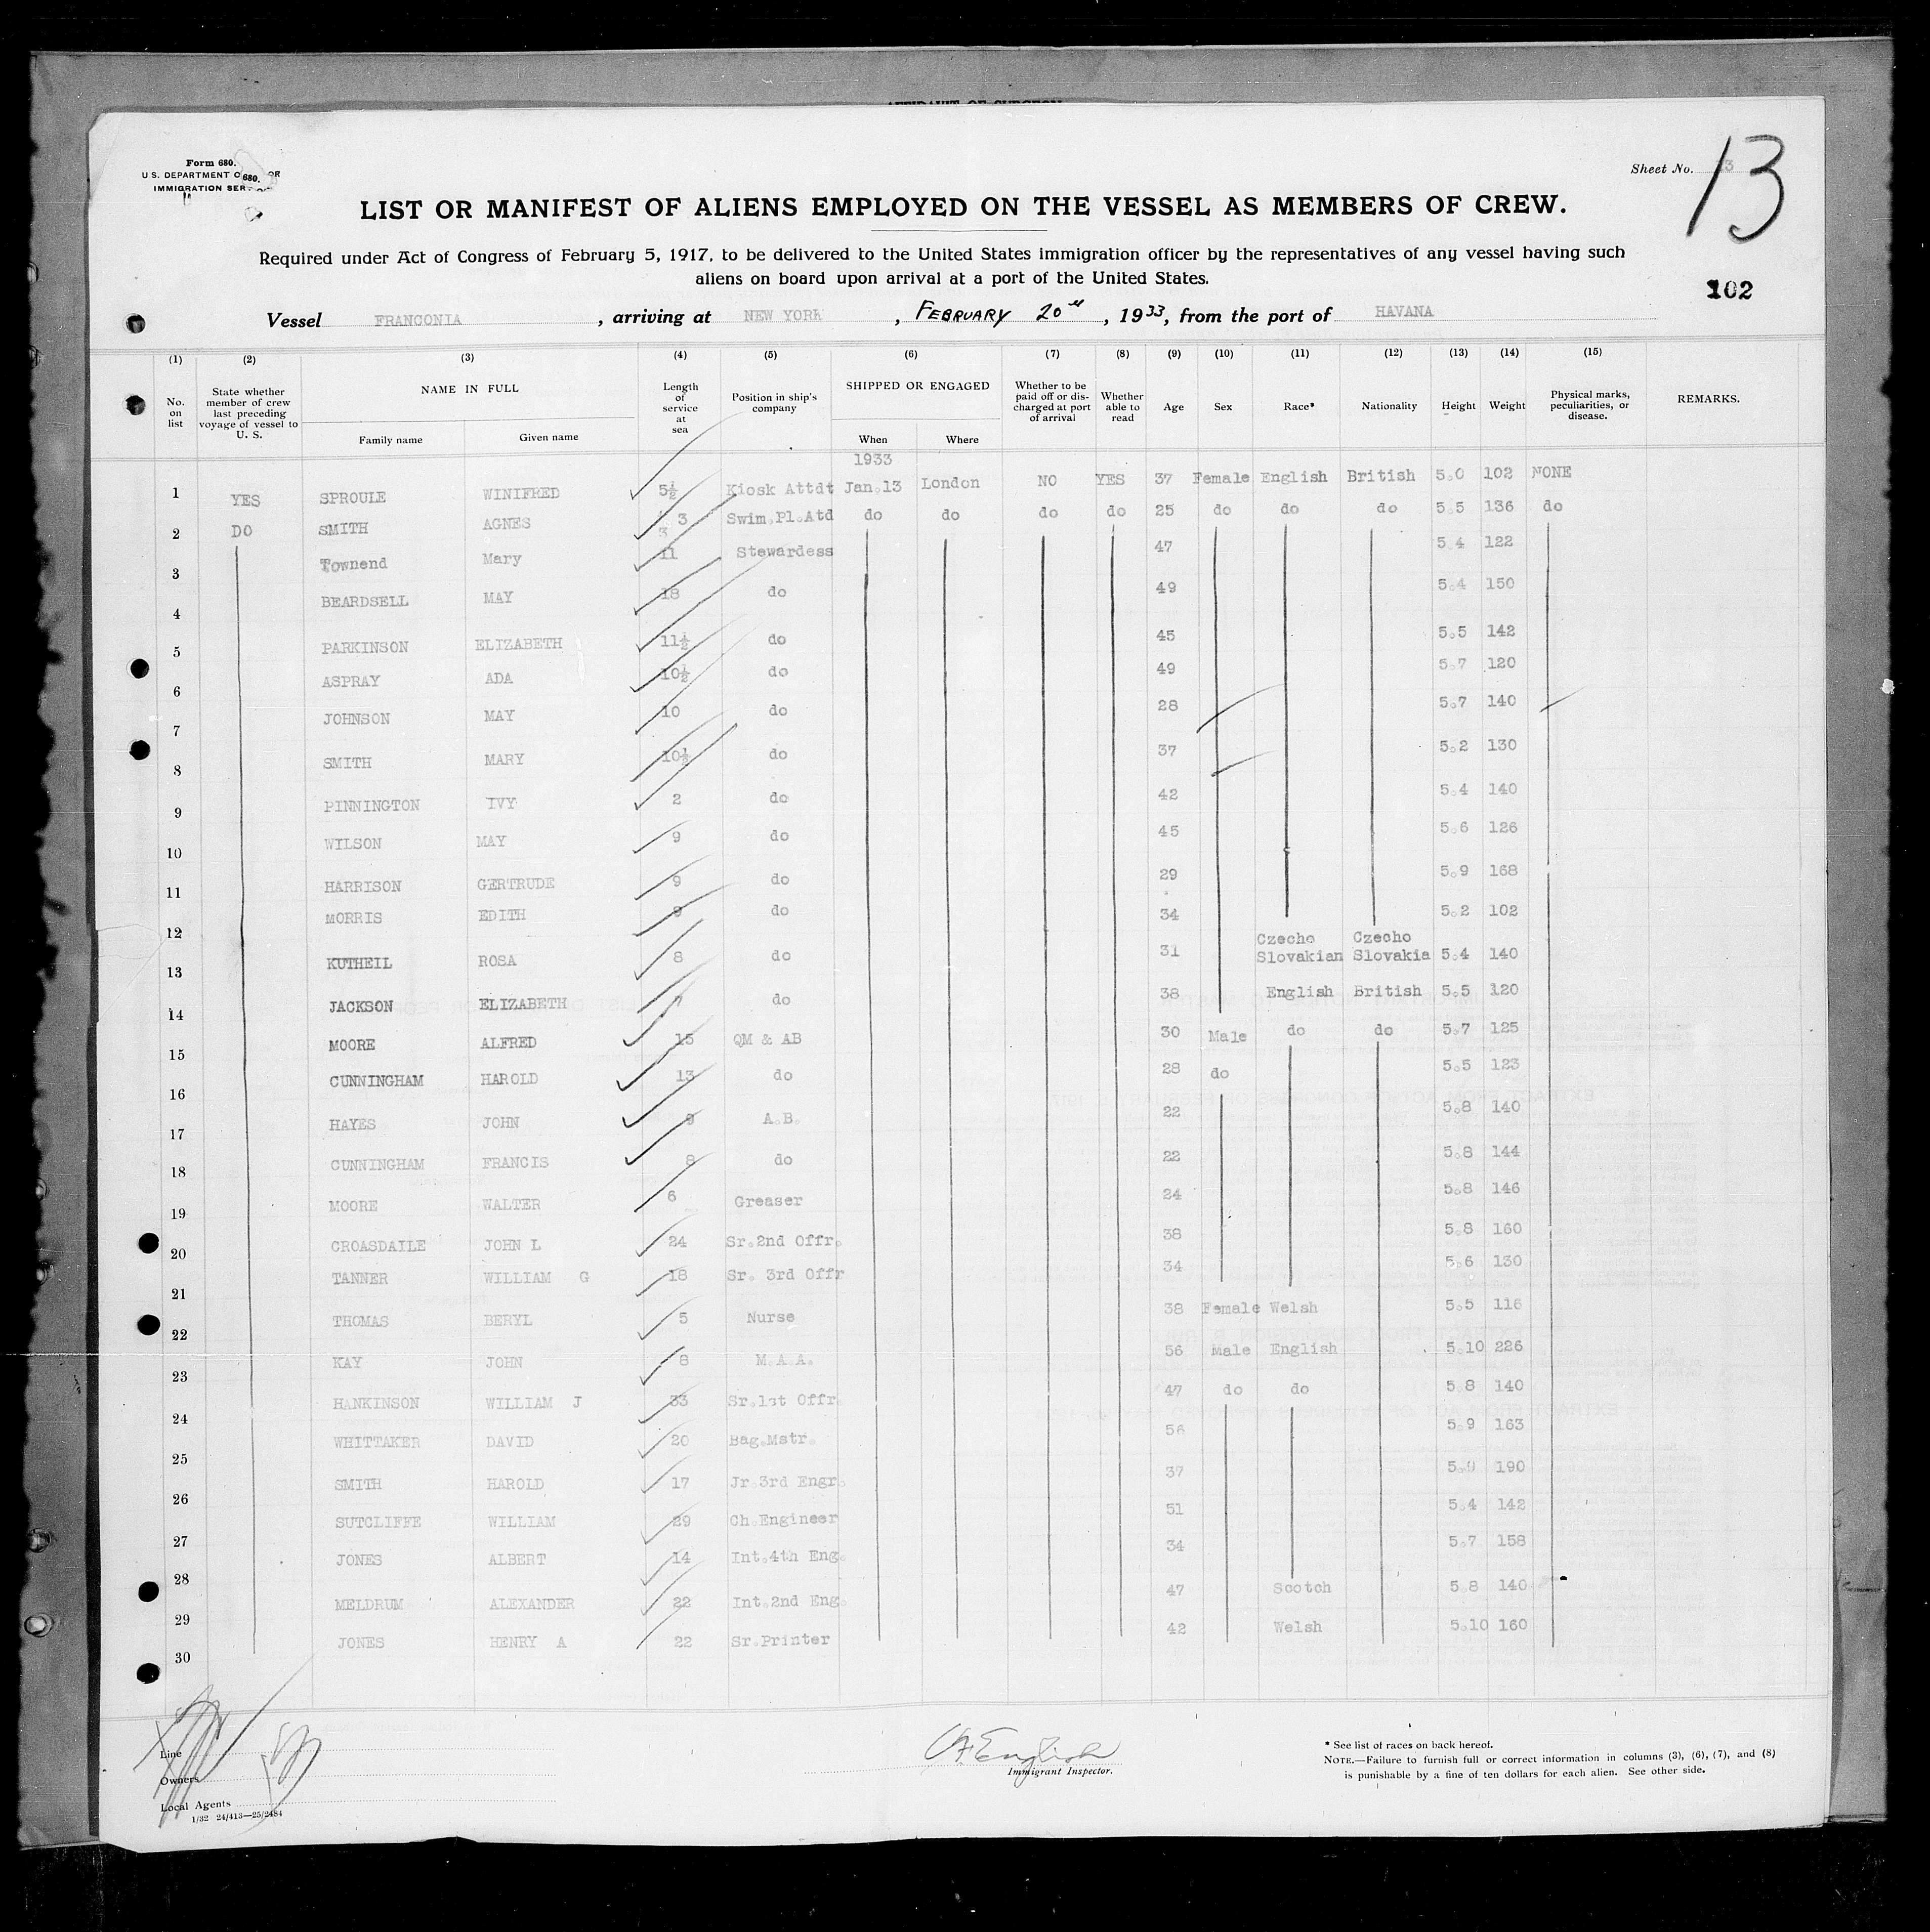 AFFIDAVIT OF SURGEON
Form 680.
U. S. DEPARTMENT O 680. OR
IMMIGRATION SER
Sheet No. 13
13
LIST OR MANIFEST OF ALIENS EMPLOYED ON THE VESSEL AS MEMBERS OF CREW.
Required under Act of Congress of February 5, 1917, to be delivered to the United States immigration officer by the representatives of any vessel having such
aliens on board upon arrival at a port of the United States.
102
Vessel FRANCONIA , arriving at NEW YORK , FEBRUARY 20th , 1933, from the port of HAVANA
(1) (2) (3) (4) (5) (6) (7) (8) (9) (10) (11) (12) (13) (14) (15)
No. on list State whether member of crew last preceding voyage of vessel to U. S. NAME IN FULL Family name Given name Length of service at sea Position in ship's company SHIPPED OR ENGAGED When Where Whether to be paid off or discharged at port of arrival Whether able to read Age Sex Race* Nationality Height Weight Physical marks, peculiarities, or disease. REMARKS.
1933
1 YES SPROULE WINIFRED 5½ Kiosk Attdt Jan.13 London NO YES 37 Female English British 5.0 102 NONE
2 DO SMITH AGNES 3 3 Swim.Pl.Atd do do do do 25 do do do 5.5 136 do
3 Townend Mary 11 Stewardess 47 5.4 122
4 BEARDSELL MAY 18 do 49 5.4 150
5 PARKINSON ELIZABETH 11½ do 45 5.5 142
6 ASPRAY ADA 10½ do 49 5.7 120
7 JOHNSON MAY 10 do 28 5.7 140
8 SMITH MARY 10½ do 37 5.2 130
9 PINNINGTON IVY 2 do 42 5.4 140
10 WILSON MAY 9 do 45 5.6 126
11 HARRISON GERTRUDE 9 do 29 5.9 168
12 MORRIS EDITH 9 do 34 5.2 102
13 KUTHEIL ROSA 8 do 31 Czecho Slovakian Czecho Slovakia 5.4 140
14 JACKSON ELIZABETH 7 do 38 English British 5.5 120
15 MOORE ALFRED 15 QM & AB 30 Male do do 5.7 125
16 CUNNINGHAM HAROLD 13 do 28 do 5.5 123
17 HAYES JOHN 9 A.B. 22 5.8 140
18 CUNNINGHAM FRANCIS 8 do 22 5.8 144
19 MOORE WALTER 6 Greaser 24 5.8 146
20 CROASDAILE JOHN L 24 Sr.2nd Offr. 38 5.8 160
21 TANNER WILLIAM G 18 Sr. 3rd Offr 34 5.6 130
22 THOMAS BERYL 5 Nurse 38 Female Welsh 5.5 116
23 KAY JOHN 8 M.A.A. 56 Male English 5.10 226
24 HANKINSON WILLIAM J 33 Sr.1st Offr. 47 do do 5.8 140
25 WHITTAKER DAVID 20 Bag.Mstr. 56 5.9 163
26 SMITH HAROLD 17 Jr.3rd Engr. 37 5.9 190
27 SUTCLIFFE WILLIAM 29 Ch.Engineer 51 5.4 142
28 JONES ALBERT 14 Int.4th Eng. 34 5.7 158
29 MELDRUM ALEXANDER 22 Int.2nd Eng. 47 Scotch 5.8 140
30 JONES HENRY A 22 Sr.Printer 42 Welsh 5.10 160
Line
Owners
Local Agents
1/32 24/413—25/2484
English
Immigrant Inspector.
* See list of races on back hereof.
NOTE.—Failure to furnish full or correct information in columns (3), (6), (7), and (8)
is punishable by a fine of ten dollars for each alien. See other side.